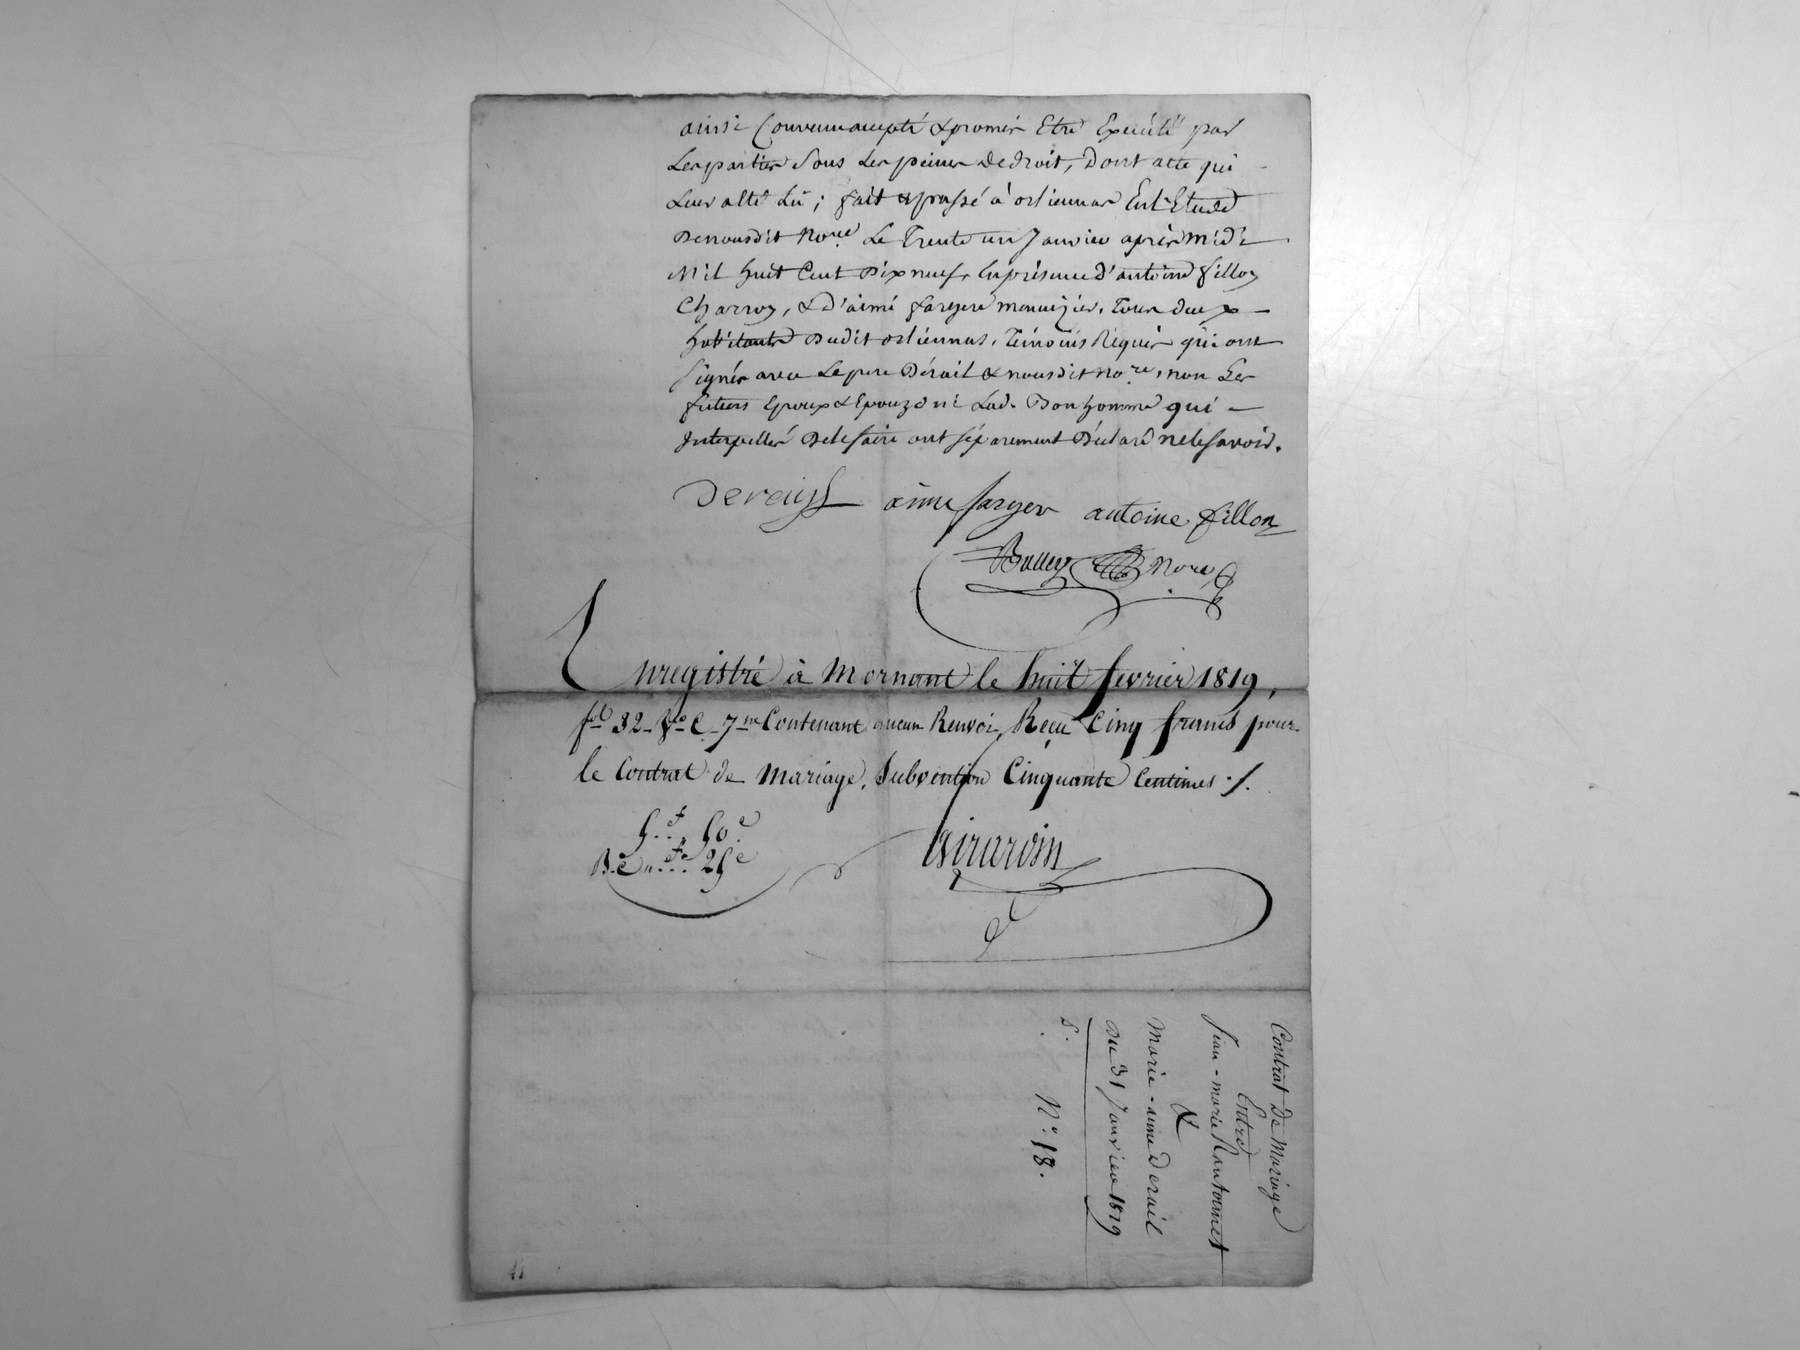 ainsi Convenu accepté & promis Etre Exécuté par
Les parties Sous Les peines de droit, Dont acte qui
Leur a été Lu ; fait & passé à orliennas En L'Etude
De nous dit No.re Le Trente un Janvier après midi
Mil huit Cent Dix neuf, En présence d'antoine fillon
Charron, & d'aimé fargere menuizier, Tous deux
habitants Dudit orliennas, Témoins Réquis qui ont
Signés avec Le pere Dérail & nous dit no.re, non Les
futurs Epoux & Epouze ni Lad. Bonhomme qui
Interpellés De le faire ont séparement Déclaré ne le savoir.
aime farger antoine fillon
No.re
Enregistré à Mornant le huit fevrier 1819,
f.o 32 V.o C. 7.me Contenant aucun Renvoi, Reçu Cinq francs pour
le Contrat de Mariage, Subvention Cinquante Centimes ./.
5.f 50.c
25.c
Girardin
Contrat De Mariage
Entre
Jean-marie
&
Marie-anne Derail
Du 31 Janvier 1819
N.o 18.